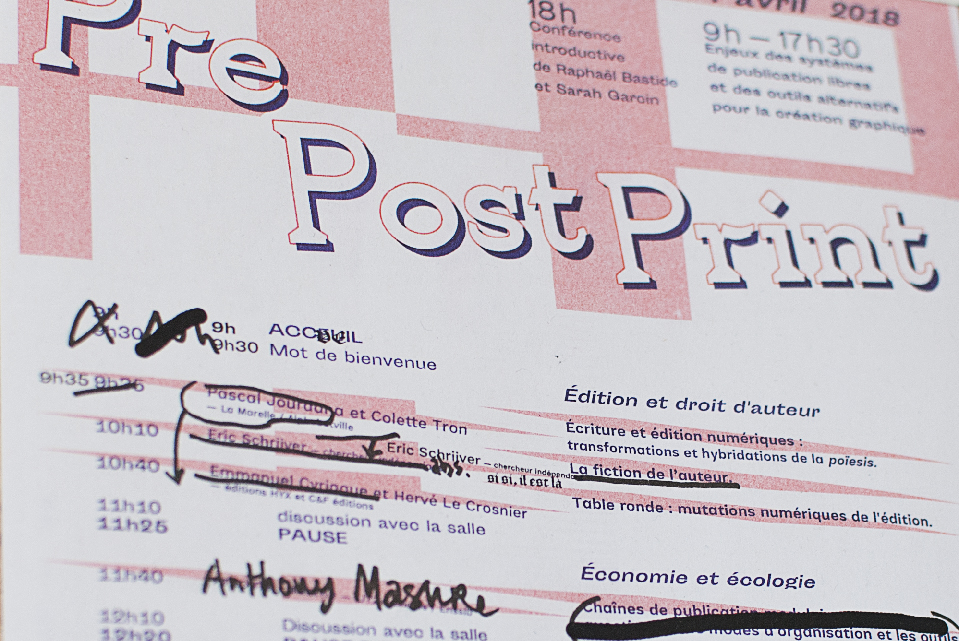 Pre
Post Print
18h
Conférence
introductive
de Raphaël Bastide
et Sarah Garcin
avril 2018
9h – 17h30
Enjeux des systèmes
de publication libres
et des outils alternatifs
pour la création graphique
9h
9h30
9h ACCEUIL
9h30 Mot de bienvenue
Édition et droit d'auteur
9h35 9h35
Pascal Jourdana et Colette Tron
— La Marelle /
Écriture et édition numériques :
transformations et hybridations de la poïesis.
10h10
Eric Schrijver,
Eric Schrijver – chercheur indépendant
si si, il est là
La fiction de l'auteur.
10h40
Emmanuel Cyriaque et Hervé Le Crosnier
— éditions HYX et C&F éditions
Table ronde : mutations numériques de l'édition.
11h10 discussion avec la salle
11h25 PAUSE
Économie et écologie
11h40 Anthony Masure
Chaînes de publication
modes d'organisation et les outils
12h10 Discussion avec la salle
12h20